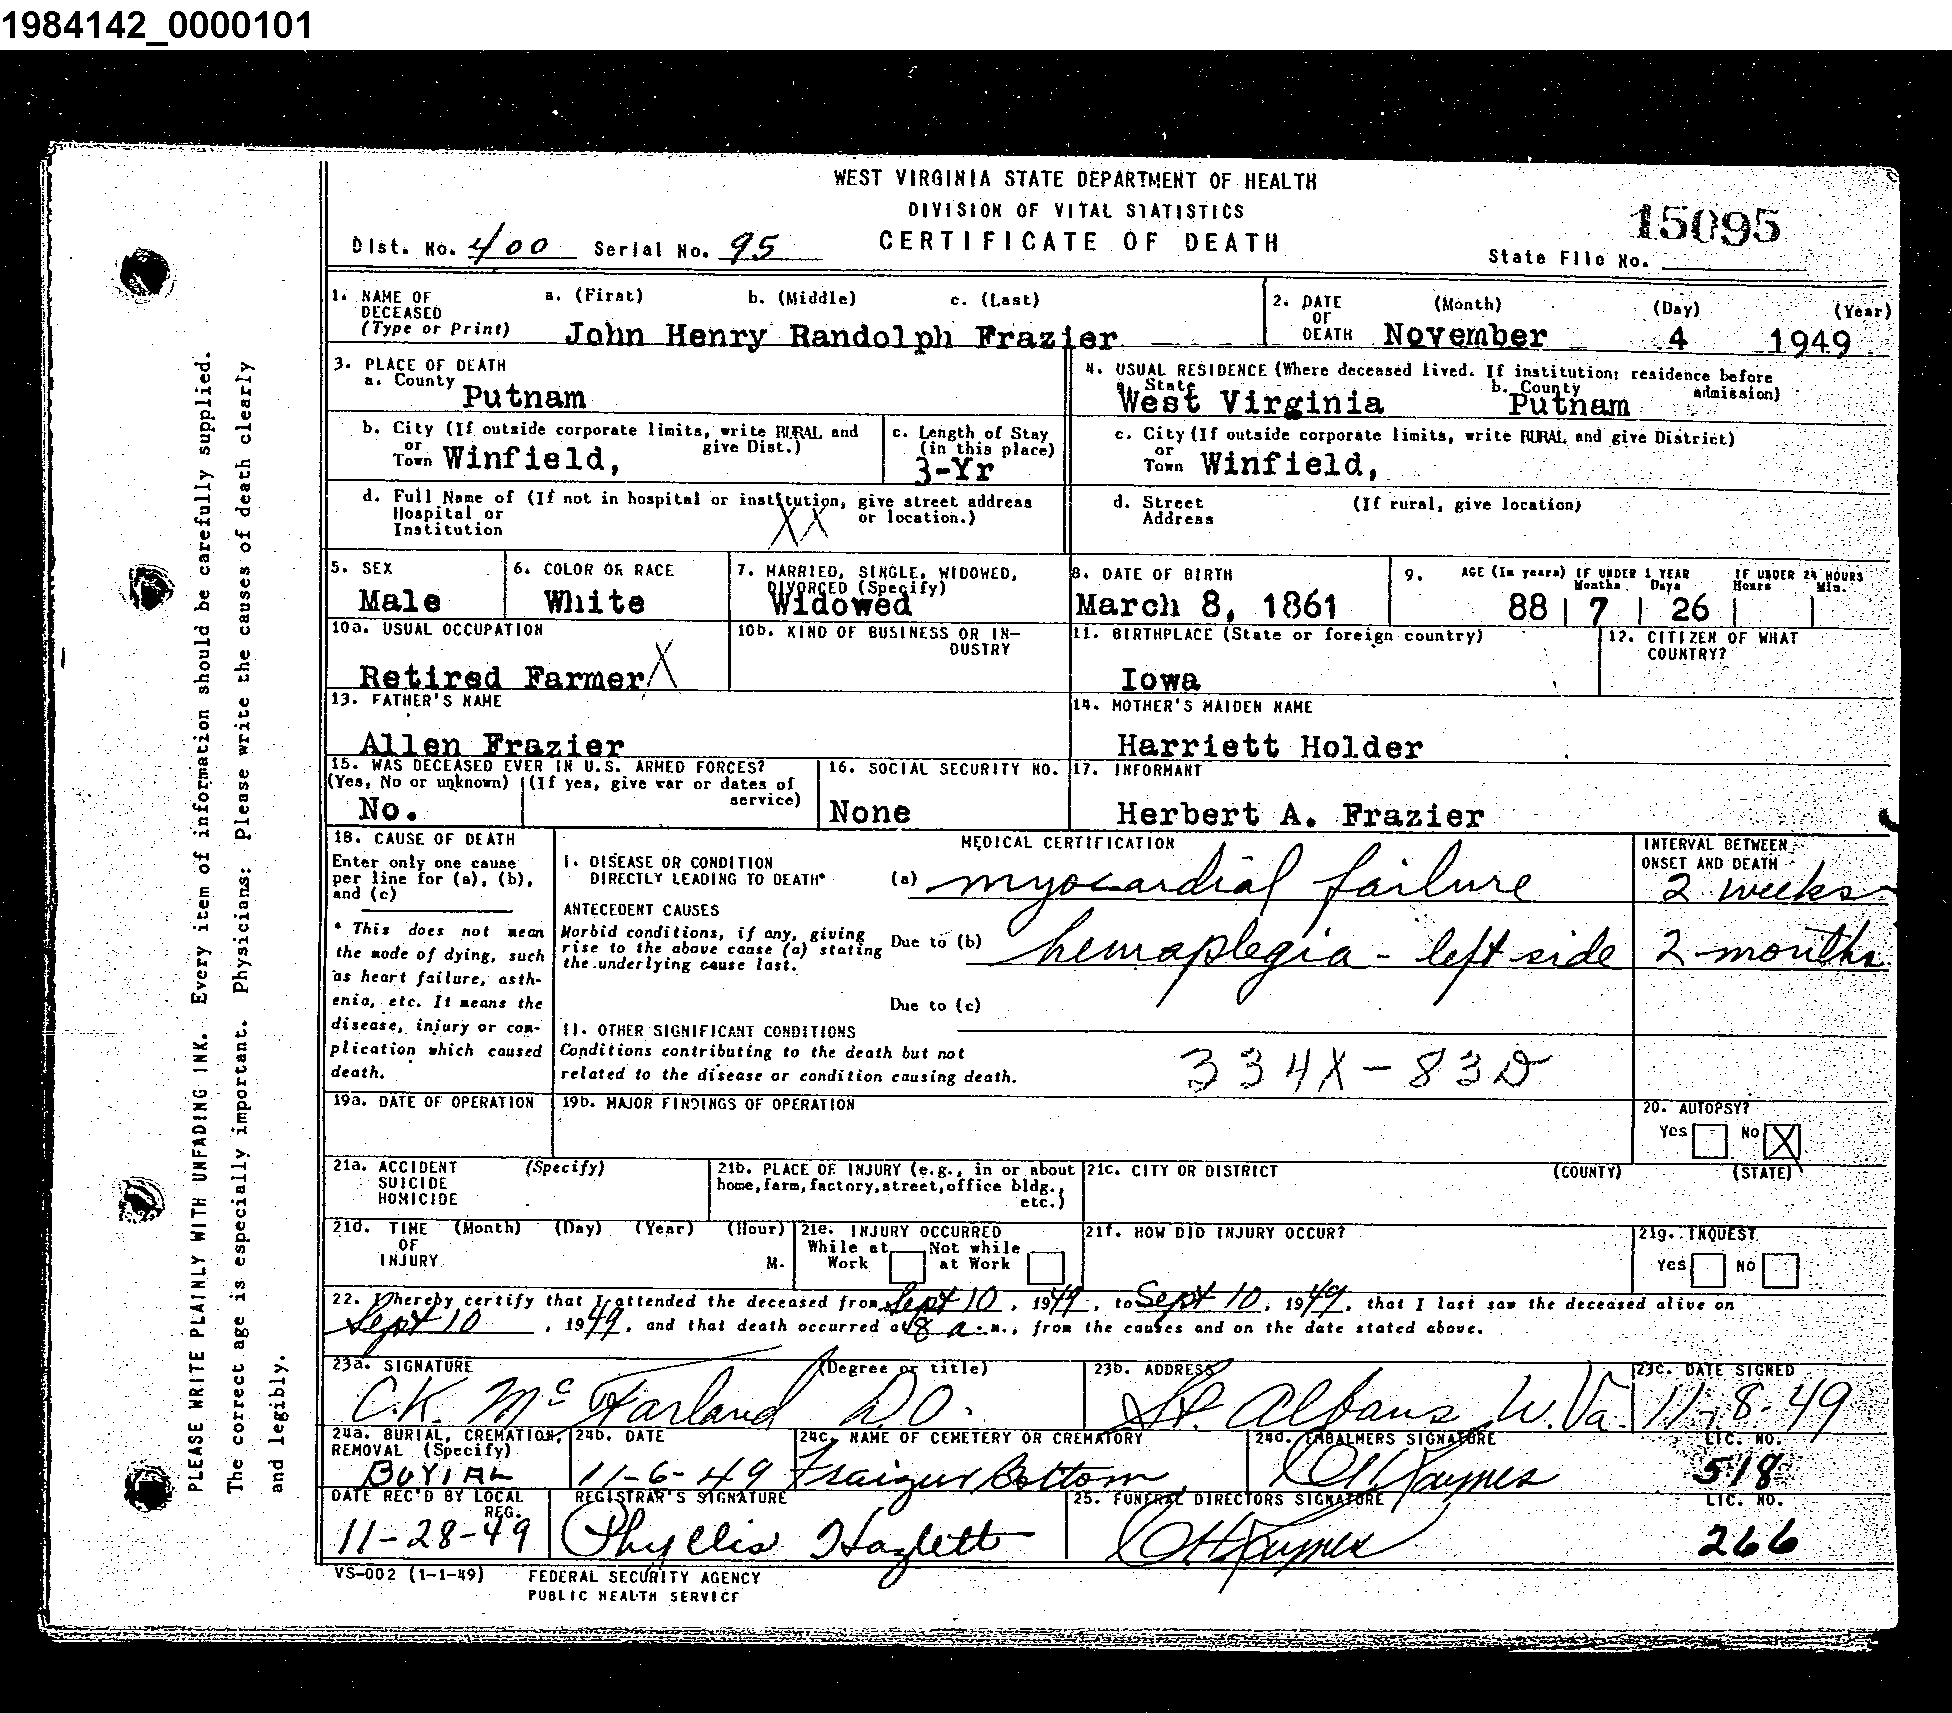 1984142_0000101
WEST VIRGINIA STATE DEPARTMENT OF HEALTH
DIVISION OF VITAL STATISTICS
CERTIFICATE OF DEATH
15095
Dist. No. 400 Serial No. 95
State File No.
1. NAME OF DECEASED (Type or Print) a. (First) b. (Middle) c. (Last)
John Henry Randolph Frazier
2. DATE OF DEATH (Month) (Day) (Year)
November 4 1949
3. PLACE OF DEATH
a. County Putnam
4. USUAL RESIDENCE (Where deceased lived. If institution: residence before admission)
a. State West Virginia b. County Putnam
b. City (If outside corporate limits, write RURAL and give Dist.)
or Town Winfield,
c. Length of Stay (in this place)
3-Yr
c. City (If outside corporate limits, write RURAL and give District)
or Town Winfield,
d. Full Name of (If not in hospital or institution, give street address or location.)
Hospital or Institution
XX
d. Street Address (If rural, give location)
5. SEX
Male
6. COLOR OR RACE
White
7. MARRIED, SINGLE, WIDOWED, DIVORCED (Specify)
Widowed
8. DATE OF BIRTH
March 8, 1861
9. AGE (In years) IF UNDER 1 YEAR Months Days IF UNDER 24 HOURS Hours Min.
88 7 26
10a. USUAL OCCUPATION
Retired Farmer X
10b. KIND OF BUSINESS OR INDUSTRY
11. BIRTHPLACE (State or foreign country)
Iowa
12. CITIZEN OF WHAT COUNTRY?
13. FATHER'S NAME
Allen Frazier
14. MOTHER'S MAIDEN NAME
Harriett Holder
15. WAS DECEASED EVER IN U.S. ARMED FORCES?
(Yes, No or unknown) (If yes, give war or dates of service)
No.
16. SOCIAL SECURITY NO.
None
17. INFORMANT
Herbert A. Frazier
18. CAUSE OF DEATH
Enter only one cause per line for (a), (b), and (c)
* This does not mean the mode of dying, such as heart failure, asthenia, etc. It means the disease, injury or complication which caused death.
MEDICAL CERTIFICATION
INTERVAL BETWEEN ONSET AND DEATH
I. DISEASE OR CONDITION DIRECTLY LEADING TO DEATH*
(a) myocardial failure 2 weeks
ANTECEDENT CAUSES
Morbid conditions, if any, giving rise to the above cause (a) stating the underlying cause last.
Due to (b) hemaplegia - left side 2 months
Due to (c)
II. OTHER SIGNIFICANT CONDITIONS
Conditions contributing to the death but not related to the disease or condition causing death.
334X-83D
19a. DATE OF OPERATION
19b. MAJOR FINDINGS OF OPERATION
20. AUTOPSY?
Yes No X
21a. ACCIDENT SUICIDE HOMICIDE (Specify)
21b. PLACE OF INJURY (e.g., in or about home, farm, factory, street, office bldg., etc.)
21c. CITY OR DISTRICT (COUNTY) (STATE)
21d. TIME OF INJURY (Month) (Day) (Year) (Hour) M.
21e. INJURY OCCURRED
While at Work Not while at Work
21f. HOW DID INJURY OCCUR?
21g. INQUEST
Yes No
22. I hereby certify that I attended the deceased from Sept 10, 1949, to Sept 10, 1949, that I last saw the deceased alive on
Sept 10, 1949, and that death occurred at 8 a.m., from the causes and on the date stated above.
23a. SIGNATURE (Degree or title)
C.K. McFarland D.O.
23b. ADDRESS
St. Albans W.Va.
23c. DATE SIGNED
11-8-49
24a. BURIAL, CREMATION, REMOVAL (Specify)
Burial
24b. DATE
11-6-49
24c. NAME OF CEMETERY OR CREMATORY
Fraizier Bottom
24d. EMBALMERS SIGNATURE LIC. NO.
518
DATE REC'D BY LOCAL REG.
11-28-49
REGISTRAR'S SIGNATURE
Phyllis Hazlett
25. FUNERAL DIRECTORS SIGNATURE LIC. NO.
266
VS-002 (1-1-49) FEDERAL SECURITY AGENCY
PUBLIC HEALTH SERVICE
PLEASE WRITE PLAINLY WITH UNFADING INK. Every item of information should be carefully supplied.
The correct age is especially important. Physicians: Please write the causes of death clearly
and legibly.